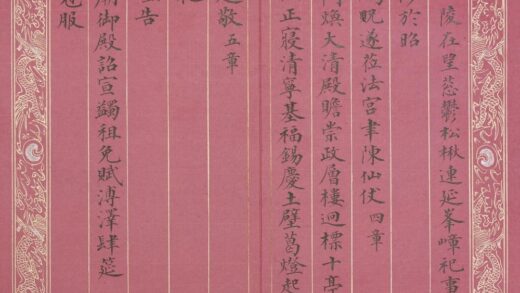 陵在望蔥鬱松楸連延峯嶂祀事
於昭
貺遂莅法宮聿陳仙仗四章
煥大清殿瞻崇政層樓迥標十亭
正寢清寧基福錫慶土壁葛燈起
敬五章
告
御殿詔宣蠲租免賦溥澤肆筵
服